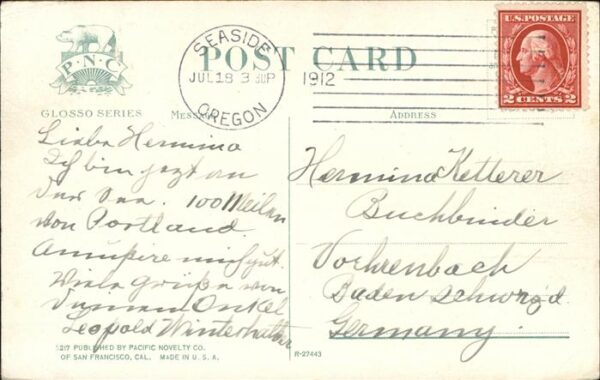 P·N·C
GLOSSO SERIES
POST CARD
SEASIDE
JUL 18 3 30P
1912
OREGON
U.S. POSTAGE
2 CENTS 2
MESSAGE
ADDRESS
Liebe Hermina
Ich bin jezt an
Der See. 100 Meilen
von Portland.
Amusire mich gut.
Viele grüße von
Deinem Onkel
Leopold Winterhalter
Hermina Ketterer
Buchbinder
Vöhrenbach
Baden schwrzd
Germany.
5217 PUBLISHED BY PACIFIC NOVELTY CO.
OF SAN FRANCISCO, CAL. MADE IN U.S.A.
R-27443